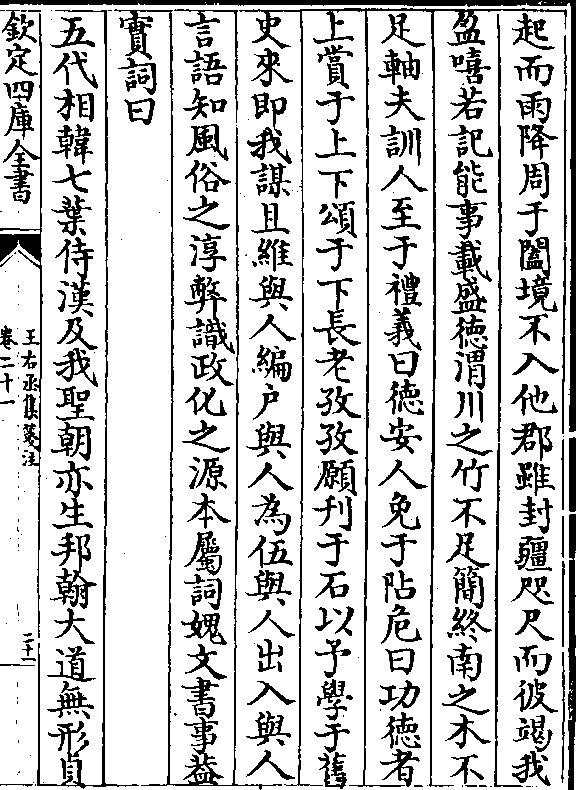 起而雨降周于闔境不入他郡雖封疆咫尺而彼竭我
盈嘻若記能事載盛德渭川之竹不足簡終南之木不
足軸夫訓人至于禮義曰德安人免于阽危曰功德者
上賞于上下頌于下長老孜孜願刊于石以予學于舊
史來即我謀且維與人編户與人為伍與人出入與人
言語知風俗之淳弊識政化之源本屬詞媿文書事益
實詞曰
五代相韓七葉侍漢及我聖朝亦生邦翰大道無形貞
欽定四庫全書
王右丞集箋注
卷二十一
二十一